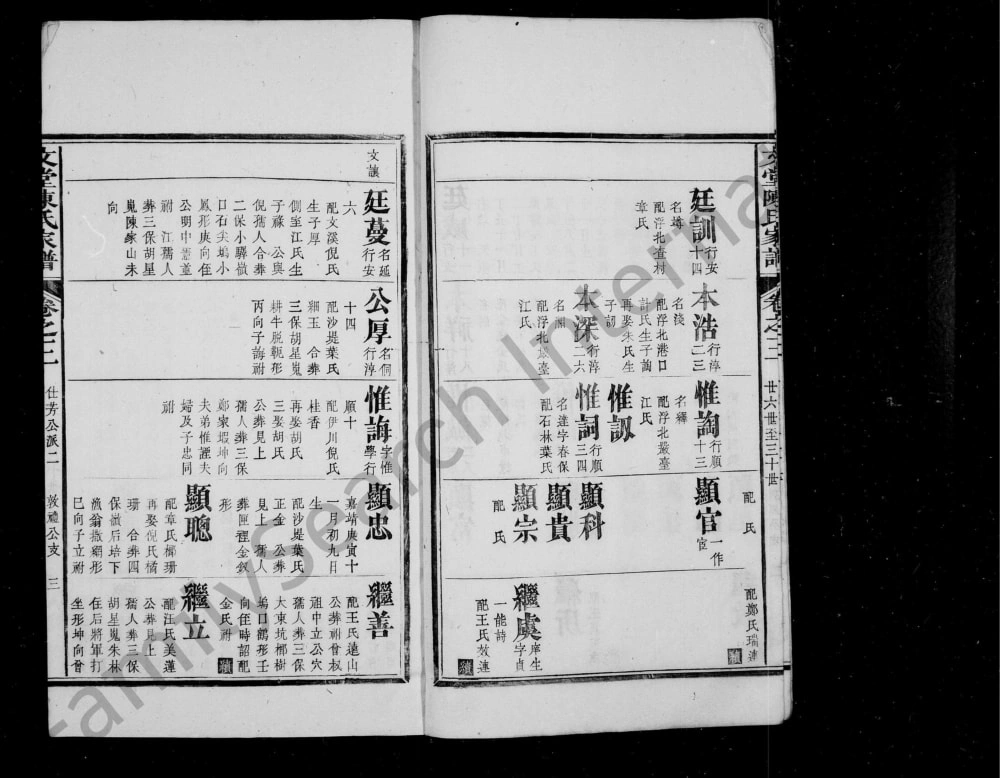 文堂陳氏家譜
卷之二
廿六世至三十世
配鄭氏瑞蓮
廷訓行安十四
名尊
配浮北查村
章氏
本浩行淳二三
名淺
配浮北港口
計氏生子謅
再娶朱氏生
子訒
本深行淳二六
名淵
配浮北嚴臺
江氏
惟謅行順十三
名釋
配浮北嚴臺
江氏
惟訒
惟詞行順三四
名達字春保
配石林葉氏
配氏
顯官一作宦
顯科
顯貴
顯宗
配氏
繼虞庠生字貞
一能詩
配王氏效連
續
文讓
廷蔓名延行安
六
配文溪倪氏
生子厚
側室江氏生
子祿 公與
倪孺人合葬
二保小驛嶺
口石尖塢小
鳳形庚向侄
公明中憲董
祔 江孺人
葬三保胡星
嵬陳家山未
向
公厚名侗行淳
十四
配沙堤葉氏
細玉 合葬
三保胡星嵬
耕牛脫軛形
丙向子誨祔
惟誨字惟學行
順十
配伊川倪氏
桂香
再娶胡氏
公葬見上
孺人葬三保
鄭家塅坤向
夫弟惟諲夫
婦及子忠同
祔
顯忠
嘉靖庚寅十
一月初九日
生
配沙堤葉氏
正金 公葬
見上 孺人
葬匣裡金釵
形
顯聰
配章氏梛珊
再娶倪氏橘
珊 合葬四
保嶺后培下
漁翁撒網形
巳向子立祔
繼善
配王氏遠山
公葬祔曾叔
祖中立公穴
孺人葬三保
大東坑梛樹
塢口鶴形壬
向侄時詔配
金氏祔
續
繼立
配汪氏美蓮
公葬見上
孺人葬三保
胡星嵬朱林
住后將軍打
坐形坤向曾
文堂陳氏家譜
卷之二
仕芳公派二
敦禮公支
三